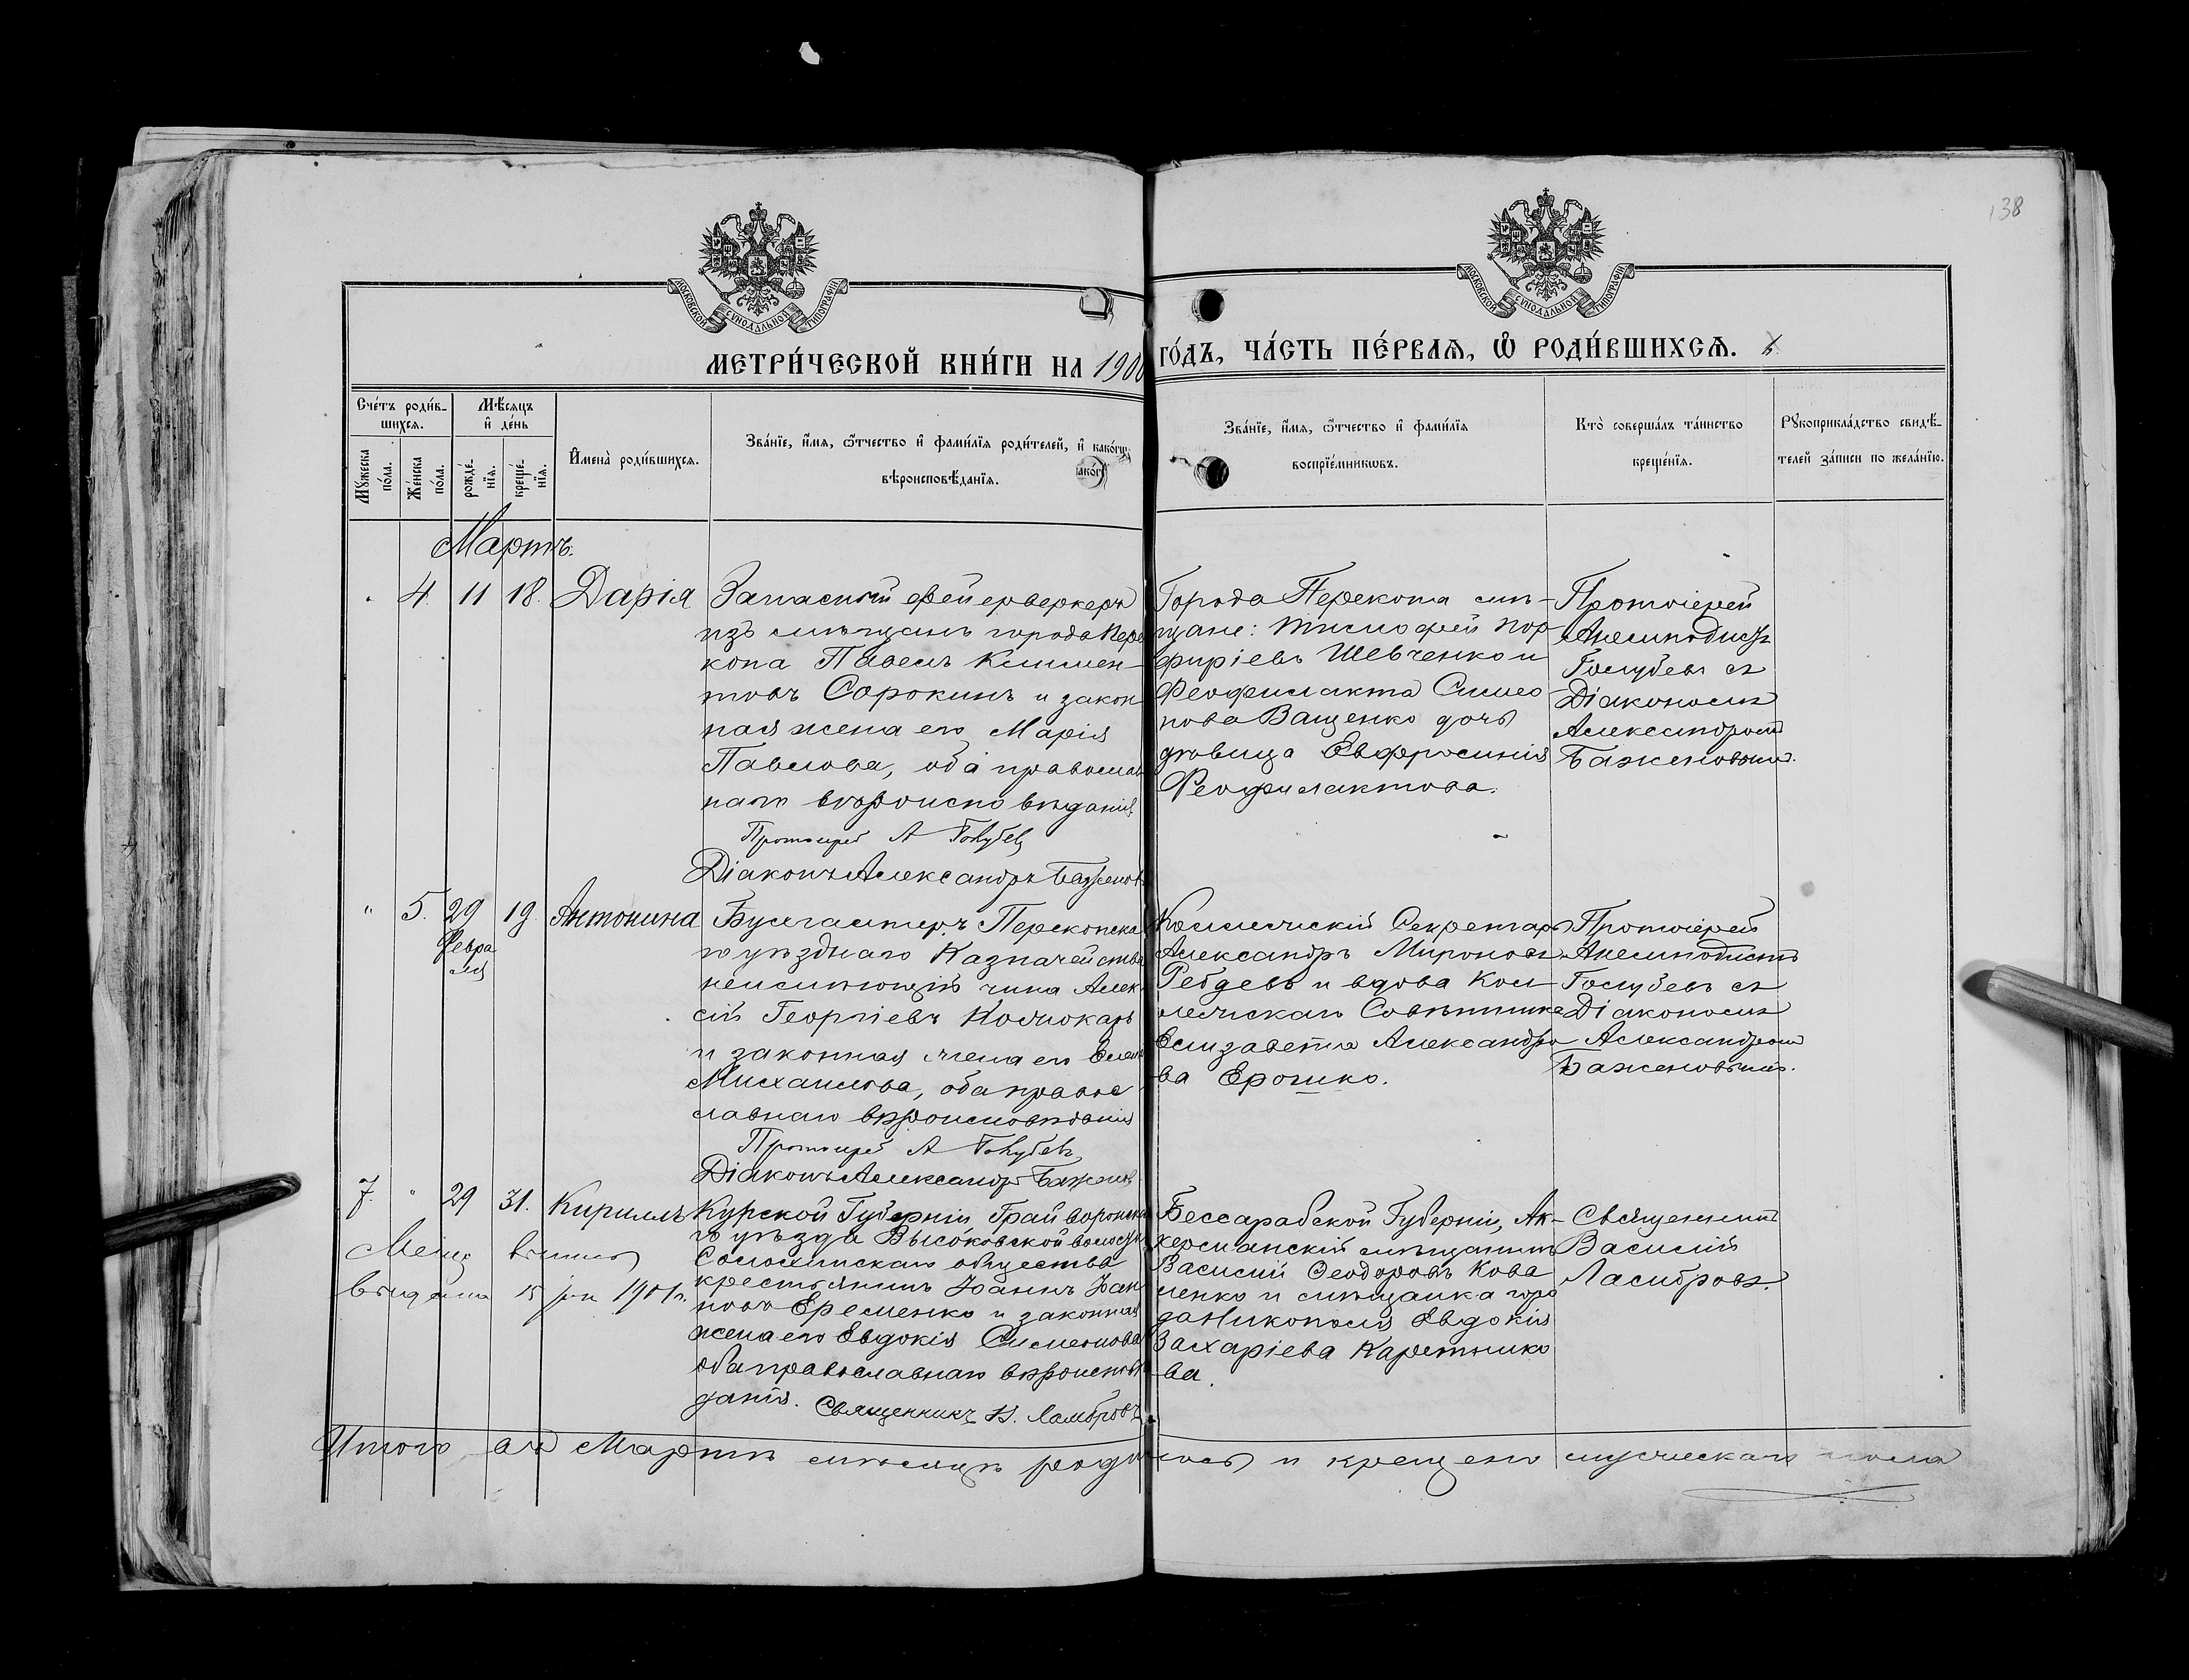 138
МОСКОВСКОЙ СѴНОДАЛЬНОЙ ТИПОГРАФІИ
МОСКОВСКОЙ СѴНОДАЛЬНОЙ ТИПОГРАФІИ
МЕТРИ́ЧЕСКОЙ КНИ́ГИ НА 1900 ГО́ДЪ, ЧА́СТЬ ПЕ́РВАѦ, Ѡ РОДИ́ВШИХСѦ.
Сче́тъ роди́в-
шихсѧ.
Мꙋ́жеска по́ла.
Же́нска по́ла.
Мѣ́сѧцъ
и҆ де́нь
рожде́-
нїѧ.
креще́-
нїѧ.
И҆мена̀ роди́вшихсѧ.
Зва́нїе, и҆́мѧ, ѻ҆́тчество и҆ фамѝлїѧ роди́телей, и҆ како́гѡ
вѣроисповѣ́данїѧ.
Зва́нїе, и҆́мѧ, ѻ҆́тчество и҆ фами́лїѧ
воспрїе́мникѡвъ.
Кто̀ соверша́лъ та́инство
креще́нїѧ.
Рꙋкоприкла́дство свидѣ́-
телей за́писи по жела́нїю.
Мартъ.
4. 11 18. Дарія
Запасный фейерверкеръ
изъ мѣщанъ города Пере
копа Павелъ Климен-
товъ Сорокинъ и закон
ная жена его Марія
Павлова, оба православ
наго вѣроисповѣданія
Протоіерей А Голубев
Діаконъ Александръ Баженов
Города Перекопа мѣ-
щане: Тимофей Пор-
фиріевъ Шевченко и
Феофилакта Симео
нова Ващенко дочь
дѣвица Евфросинія
Феофилактова.
Протоіерей
Анемподистъ
Голубевъ съ
Діакономъ
Александромъ
Баженовымъ.
" 5. 29 19. Антонина
Февра
ля
Бухгалтеръ Перекопска
го уѣзднаго Казначейства
неимѣющій чина Алек
сій Георгіевъ
и законная жена его Елен
Михаилова, оба право
славнаго вѣроисповѣданія
Протоіерей А Голубевъ
Діаконъ Александръ Баженов
Коллежскій Секретарь
Александръ Мироновъ
Ребдевъ и вдова Кол-
лежскаго Совѣтника
Елизавета Александро
ва Ерошко.
Протоіерей
Анемподистъ
Голубевъ съ
Діакономъ
Александромъ
Баженовымъ.
7. " 29 31. Кириллъ
выдана 15 1901 г.
Курской Губерніи, Грайворонска
го уѣзда Высоковской волости
Солохинскаго общества
крестьянинъ Іоаннъ Іоан
новъ Еременко и законная
жена его Евдокія Симеонова
оба православнаго вѣроисповѣ
данія. Священникъ В. Ламбровъ
Бессарабской Губерніи, Ак-
керманскій мѣщанинъ
Василій Феодоровъ Кова
ленко и мѣщанка горо
да Никополя Евдокія
Захаріева Каретнико
ва.
Священникъ
Василій
Ламбровъ.
Итого въ Мартѣ мѣсяцѣ родилось и крещено мужескаго пола